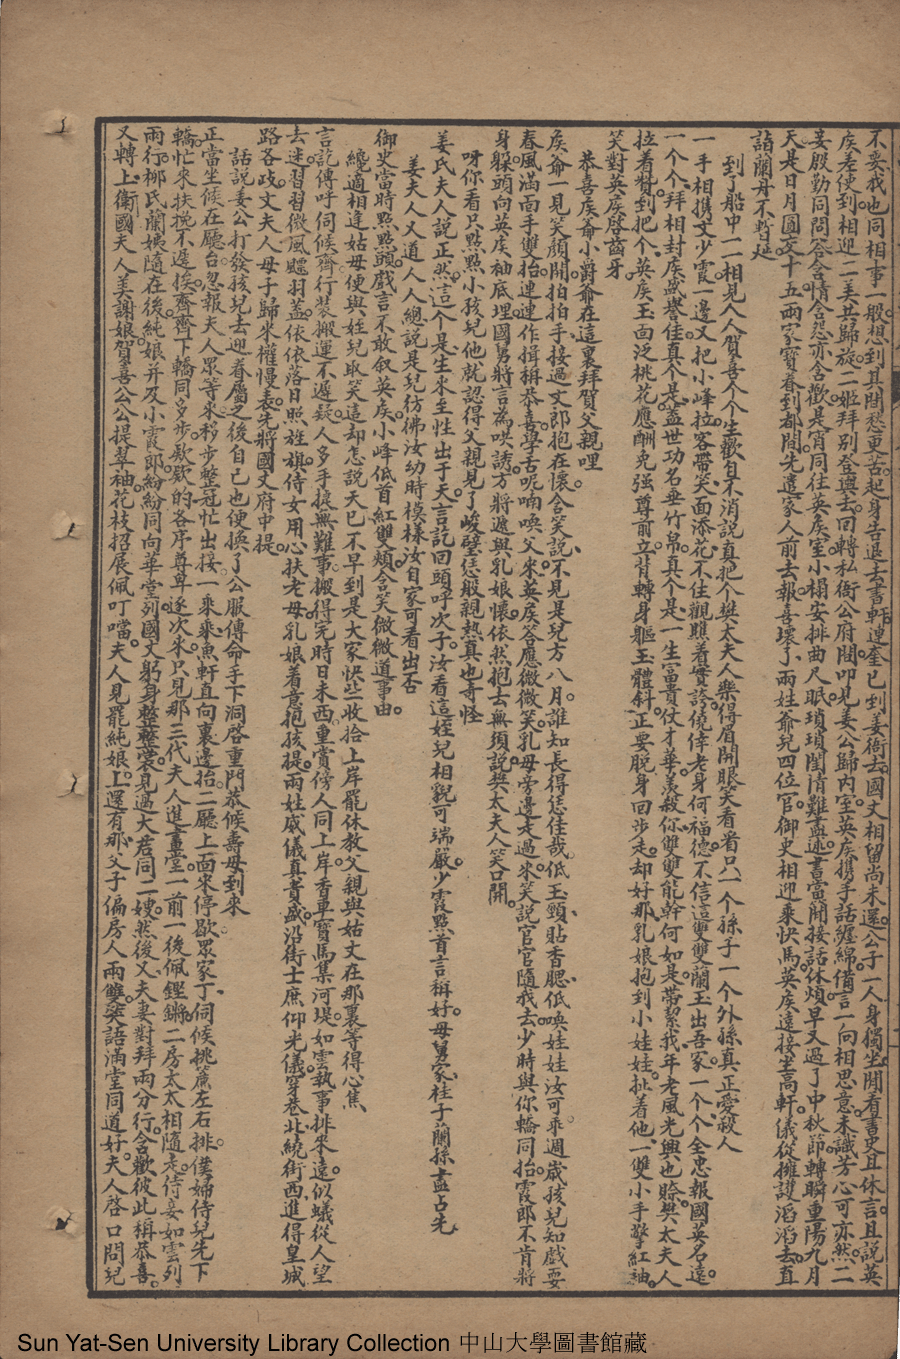 不棄我也同相事一般想到其間愁更苦起身告退去書軒連奎已到姜衙去國丈相留尚未還公子一人身獨坐閒看書史且休言且說英
矦差使到相迎二美共歸旋二姬拜別登輿去回轉私衙公府閒叩見姜公歸內室英矦携手話纏綿備言一向相思意未識芳心可亦然二
妾殷勤同問答含情含怨亦含歡是宵同住英矦室小榻安排曲尺眠瑣瑣閨情難盡述書當開接話休煩早又過了中秋節轉瞬重陽九月
天是日月圓文十五兩家寳眷到都間先遣家人前去報喜環了兩姓爺兒四位官御史相迎乘快馬英矦遠接坐高軒儀從擁護滔滔去直
詣蘭舟不暫延
到了船中一一相見人人賀喜个个生歡自不消說真把个樊太夫人樂得眉開眼笑看看只一个孫子一个外孫真正愛殺人
一手相携文少霞一邊又把小峰拉客帶笑面添花不住觀瞧着實誇僥倖老身何福德不信這雙雙蘭玉出吾家一个个全忠報國英名遠
一个个拜相封矦盛譽佳真个是蓋世功名垂竹帛真个是一生富貴仗才華羨殺你雙雙能幹何如是帶絜我年老風光興也賒樊太夫人
拉着贊到把个英矦玉面泛桃花應酬免强尊前立背轉身軀玉體斜正要脫身回步走却好那乳娘抱到小娃娃扯着他一雙小手擎紅袖
笑對英矦啓齒牙
恭喜矦爺小爵爺在這裏拜賀父親哩
矦爺一見笑顏開拍拍手接過文郎抱在懷含笑說不見是兒方八月誰知長得恁佳哉低玉頸貼香腮低喚娃娃汝可乖週歲孩兒知戲耍
春風滿面手雙抬連連作揖稱恭喜學舌呢喃喚父來英矦答應微微笑乳母旁邊走過來笑說官官隨我去少時與你轎同抬霞郎不肯將
身躱頭向英矦袖底埋國舅將言為哄誘方將遞與乳娘懷依然抱去無須說樊太夫人笑口開
呀你看只點點小孩兒他就認得父親見了峻壁恁般親熱真也奇怪
姜氏夫人說正然這个是生來主性出于天言訖回頭呼次子汝看這姪兒相貌可端嚴少霞點首言稱好母舅家桂子蘭孫盡占先
姜夫人又道人人總說是兒彷彿汝幼時模樣汝自家可看出否
御史當時點點頭戲言不敢叙英矦小峰低首紅雙頰含笑微微道事由
纔適相逢姑母便與姪兒取笑這却怎說天已不早到是大家快些收拾上岸罷休教父親與姑丈在那裏等得心焦
言訖傳呼伺候齊行裝搬運不遲疑人多手捷無難事搬得完時日未西重賞傍人同上岸香車寳馬集河堤如雲執事排來遠似蟻從人望
去迷習習微風飄羽葢依依落日照旌旗侍女用心扶老母乳娘着意抱孩提兩姓威儀真貴盛沿街士庶仰光儀穿巷北繞街西進得皇城
路各歧文夫人母子歸來權慢表先將國丈府中提
話說姜公打發孩兒去迎着屬之後自己也便換了公服傳命手下洞啓重門恭候壽母到來
正當坐候在廳台忽報夫人眾等來移步整冠忙出接一乘乘魚軒直向裏邊抬二廳上面來停歇眾家丁伺候挑簾左右排僕婦侍兒先下
轎忙來扶挽不遲挨齊齊下轎同步步欵欵的各序尊卑逐次來只見那三代夫人進畫堂一前一後佩鏗鏘二房太太相隨走侍妾如雲列
兩行柳氏蘭姨隨在後純娘并及小霞郎紛紛同向華堂列國丈躬身整整裳見過大君同二嫂然後又夫妻對拜兩分行含歡彼此稱恭喜
又轉上衛國夫人姜謝娘賀喜公公提翠袖花枝招展佩叮噹夫人見罷純娘上還有那父子偏房人兩雙笑語滿堂同道好夫人啓口問兒
Sun Yat-Sen University Library Collection 中山大學圖書館藏